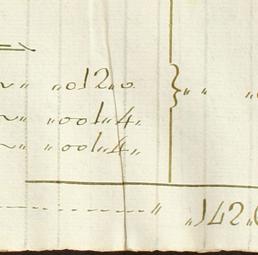 〃 〃012〃0. } 〃 〃
〃 〃001〃4〃
〃 〃001〃4〃
〃 〃142〃